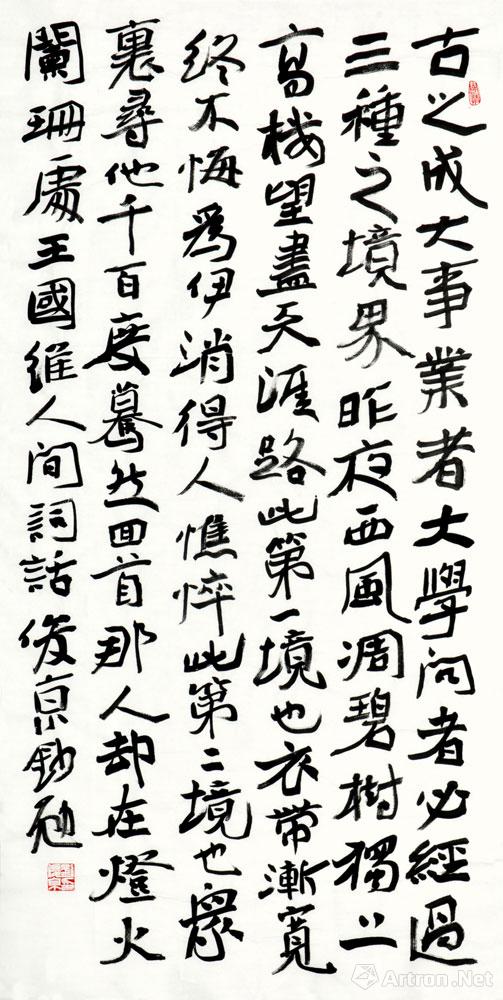 古之成大事業者大學問者必經過
三種之境界昨夜西風凋碧樹獨上
高樓望盡天涯路此第一境也衣帶漸寬
終不悔為伊消得人憔悴此第二境也眾
裏尋他千百度驀然回首那人卻在燈火
闌珊處王國維人間詞話俊京鈔
Artron.Net